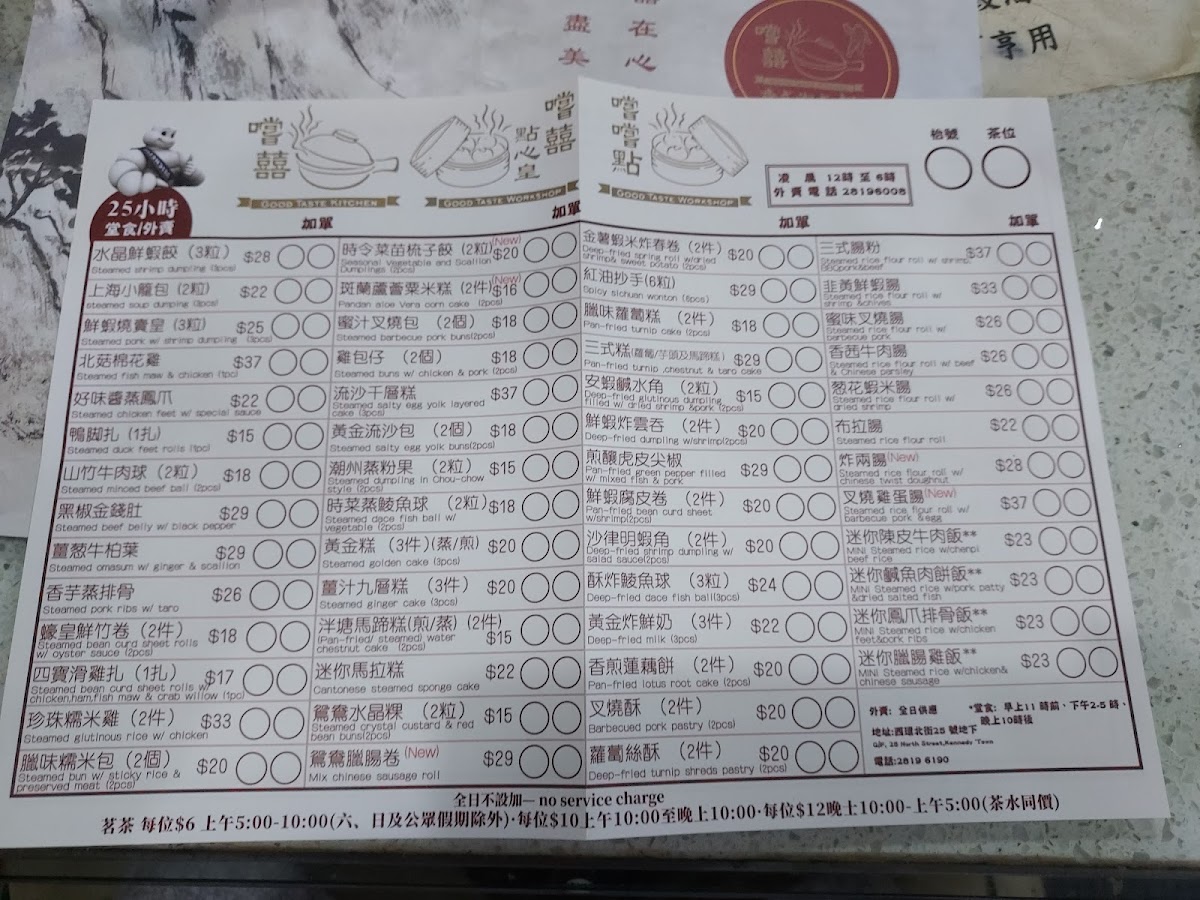 盡美
在心
享用
嚐囍
GOOD TASTE KITCHEN
嚐囍
點心皇
GOOD TASTE WORKSHOP
嚐嚐點
GOOD TASTE WORKSHOP
凌晨 12時 至 6時
外賣電話 28196008
枱號 茶位
25小時
堂食/外賣
加單
水晶鮮蝦餃 (3粒) $28
Steamed shrimp dumpling (3pcs)
上海小籠包 (2粒) $22
steamed soup dumping (3pcs)
鮮蝦燒賣皇 (3粒) $25
Steamed pork w/ shrimp dumpling (3pcs)
北菇棉花雞 $37
Steamed fish maw & chicken (1pc)
好味醬蒸鳳爪 $22
Steamed chicken feet w/ special sauce
鴨脚扎 (1扎) $15
Steamed duck feet rolls (1pc)
山竹牛肉球 (2粒) $18
Steamed minced beef ball (2pcs)
黑椒金錢肚 $29
Steamed beef belly w/ black pepper
薑葱牛柏葉 $29
Steamed omasum w/ ginger & scallion
香芋蒸排骨 $26
Steamed pork ribs w/ taro
蠔皇鮮竹卷 (2件) $18
Steamed bean curd sheet rolls
w/ oyster sauce (2pcs)
四寶滑雞扎 (1扎) $17
Steamed bean curd sheet rolls w/
chicken,ham,fish maw & crab willow (1pc)
珍珠糯米雞 (2件) $33
Steamed glutinous rice w/ chicken
臘味糯米包 (2個) $20
Steamed bun w/ sticky rice &
preserved meat (2pcs)
加單
時令菜苗梳子餃 (2粒) (New) $20
Seasonal Vegetable and Scallion
Dumplings (2pcs)
斑蘭蘆薈粟米糕 (2件) (New) $16
Pandan aloe Vera corn cake (2pcs)
蜜汁叉燒包 (2個) $18
Steamed barbecue pork buns(2pcs)
雞包仔 (2個) $18
Steamed buns w/ chicken & pork (2pcs)
流沙千層糕 $37
Steamed salty egg yolk layered
cake (3pcs)
黃金流沙包 (2個) $18
Steamed salty egg yolk buns(2pcs)
潮州蒸粉果 (2粒) $15
Steamed dumpling in Chou-chow
style (2pcs)
時菜蒸鯪魚球 (2粒) $18
Steamed dace fish ball w/
vegetable (2pcs)
黃金糕 (3件)(蒸/煎) $20
Steamed golden cake (3pcs)
薑汁九層糕 (3件) $20
Steamed ginger cake (3pcs)
泮塘馬蹄糕(煎/蒸) (2件) $15
(Pan-fried/ steamed) water
chestnut cake (2pcs)
迷你馬拉糕 $22
Cantonese steamed sponge cake
鴛鴦水晶粿 (2粒) $15
Steamed crystal custard & red
bean buns(2pcs)
鴛鴦臘腸卷 (New) $29
Mix chinese sausage roll
加單
金薯蝦米炸春卷 (2件) $20
Deep-fried spring roll w/dried
shrimp& sweet potato (2pcs)
紅油抄手(6粒) $29
Spicy sichuan wonton (6pcs)
臘味蘿蔔糕 (2件) $18
Pan-fried turnip cake (2pcs)
三式糕(蘿蔔/芋頭及馬蹄糕) $29
Pan-fried turnip ,chestnut & taro cake
安蝦鹹水角 (2粒) $15
Deep-fried glutinous dumpling
filled w/ dried shrimp &pork (2pcs)
鮮蝦炸雲吞 (2件) $20
Deep-fried dumpling w/shrimp(2pcs)
煎釀虎皮尖椒 $29
Pan-fried green pepper filled
w/ mixed fish & pork
鮮蝦腐皮卷 (2件) $20
Pan-fried bean curd sheet
w/shrimp(2pcs)
沙律明蝦角 (2件) $20
Deep-fried shrimp dumpling w/
salad sauce(2pcs)
酥炸鯪魚球 (3粒) $24
Deep-fried dace fish ball(3pcs)
黃金炸鮮奶 (3件) $22
Deep-fried milk (3pcs)
香煎蓮藕餅 (2件) $20
Pan-fried lotus root cake (2pcs)
叉燒酥 (2件) $20
Barbecued pork pastry (2pcs)
蘿蔔絲酥 (2件) $20
Deep-fried turnip shreds pastry (2pcs)
加單
三式腸粉 $37
Steamed rice flour roll w/ shrimp,
BBQpork&beef
韭黃鮮蝦腸 $33
Steamed rice flour roll w/
shrimp &chives
蜜味叉燒腸 $26
Steamed rice flour roll w/
barbecue pork
香茜牛肉腸 $26
Steamed rice flour roll w/ beef
& Chinese parsley
葱花蝦米腸 $26
Steamed rice flour roll w/
dried shrimp
布拉腸 $22
Steamed rice flour roll
炸兩腸(New) $28
Steamed rice flour roll w/
chinese twist doughnut
叉燒雞蛋腸(New) $37
Steamed rice flour roll w/
barbecue pork &egg
迷你陳皮牛肉飯** $23
MINI Steamed rice w/chenpi
beef rice
迷你鹹魚肉餅飯** $23
MINI Steamed rice w/pork patty
&dried salted fish
迷你鳳爪排骨飯** $23
MINI Steamed rice w/chicken
feet&pork ribs
迷你臘腸雞飯** $23
MINI Steamed rice w/chicken&
chinese sausage
外賣: 全日供應 *堂食: 早上11時前、下午2-5時、
晚上10時後
地址:西環北街25 號地下
G/F, 25 North Street,Kennedy Town
電話:2819 6190
全日不設加一 no service charge
茗茶 每位$6 上午5:00-10:00(六、日及公眾假期除外)·每位$10上午10:00至晚上10:00·每位$12晚士10:00-上午5:00(茶水同價)